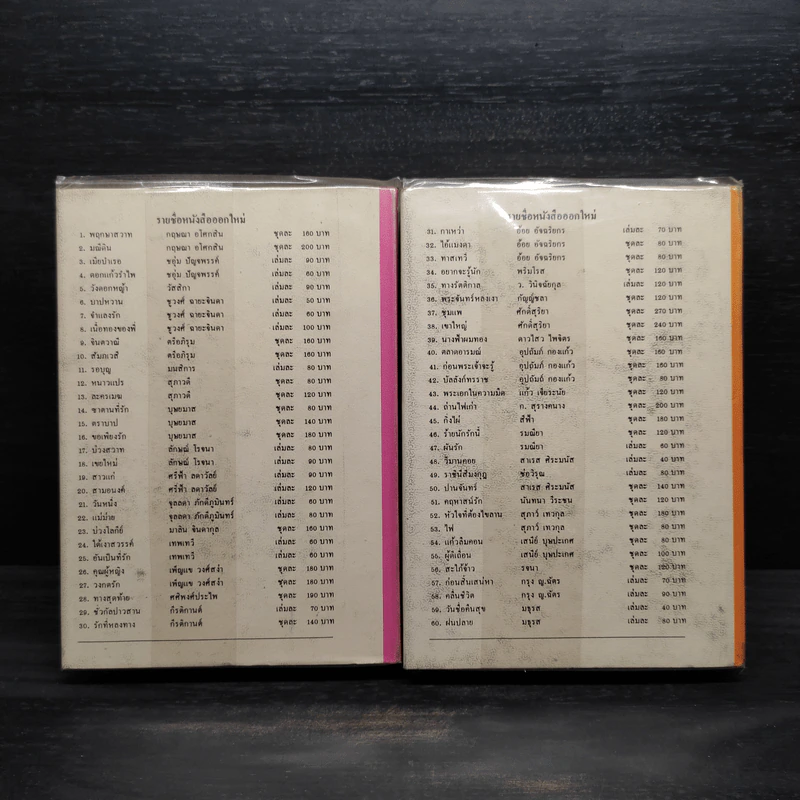 รายชื่อหนังสือออกใหม่
1. พฤกษาสวาท กฤษณา อโศกสิน ชุดละ 160 บาท
2. มณีดิน กฤษณา อโศกสิน ชุดละ 200 บาท
3. เมียบำเรอ ชอุ่ม ปัญจพรรค์ เล่มละ 90 บาท
4. ดอกแก้วรำไพ ชอุ่ม ปัญจพรรค์ เล่มละ 60 บาท
5. วังดอกหญ้า วัสสิกา เล่มละ 90 บาท
6. บาปหวาน ชูวงศ์ ฉายะจินดา เล่มละ 50 บาท
7. จำแลงรัก ชูวงศ์ ฉายะจินดา เล่มละ 60 บาท
8. เนื้อทองของพี่ ชูวงศ์ ฉายะจินดา เล่มละ 100 บาท
9. จินตวาณี ตรีอภิรุม ชุดละ 160 บาท
10. สัมภเวสี ตรีอภิรุม ชุดละ 160 บาท
11. รอบุญ มนสิการ เล่มละ 80 บาท
12. หนาวแปร สุภาวดี ชุดละ 60 บาท
13. ละครเมฆ สุภาวดี ชุดละ 120 บาท
14. ซาตานที่รัก บุษยมาส ชุดละ 80 บาท
15. ตราบาป บุษยมาส ชุดละ 140 บาท
16. ขอเพียงรัก บุษยมาส ชุดละ 180 บาท
17. บ่วงสวาท ลักษณ์ โรจนา เล่มละ 80 บาท
18. เขยใหม่ ลักษณ์ โรจนา เล่มละ 90 บาท
19. สาวแก่ ศรีฟ้า ลดาวัลย์ เล่มละ 90 บาท
20. สามอนงค์ ศรีฟ้า ลดาวัลย์ ชุดละ 120 บาท
21. วันหนึ่ง จุลลดา ภักดีภูมินทร์ เล่มละ 60 บาท
22. แม่ม่าย จุลลดา ภักดีภูมินทร์ เล่มละ 80 บาท
23. บ่วงโลกีย์ มาลิน จินดากุล ชุดละ 160 บาท
24. ใต้เงาสวรรค์ เทพเทวี เล่มละ 60 บาท
25. อันเป็นที่รัก เทพเทวี เล่มละ 60 บาท
26. คุณผู้หญิง เพ็ญแข วงศ์สง่า ชุดละ 180 บาท
27. วงกตรัก เพ็ญแข วงศ์สง่า ชุดละ 180 บาท
28. ทางสุดท้าย ศศิพงศ์ประไพ ชุดละ 190 บาท
29. ชั่วกัลปาวสาน กีรติกานต์ เล่มละ 70 บาท
30. รักที่หลงทาง กีรติกานต์ ชุดละ 140 บาท
รายชื่อหนังสือออกใหม่
31. กาเหว่า อ้อย อัจฉริยกร เล่มละ 70 บาท
32. ไอ้แมงดา อ้อย อัจฉริยกร ชุดละ 60 บาท
33. ทาสเทวี อ้อย อัจฉริยกร ชุดละ 80 บาท
34. อยากจะรู้นัก พริมโรส ชุดละ 120 บาท
35. ทางรัตติกาล ว. วินิจฉัยกุล เล่มละ 120 บาท
36. พระจันทร์หลงเงา กัญญ์ชลา ชุดละ 120 บาท
37. ขุมแพ ศักดิ์สุริยา ชุดละ 270 บาท
38. เขาใหญ่ ศักดิ์สุริยา ชุดละ 240 บาท
39. นางฟ้าผมทอง ดาวไสว ไพจิตร ชุดละ 160 บาท
40. ตลาดอารมณ์ อุปถัมภ์ กองแก้ว ชุดละ 160 บาท
41. ก่อนพระเจ้าจะรู้ อุปถัมภ์ กองแก้ว ชุดละ 160 บาท
42. บัลลังก์ทรราช อุปถัมภ์ กองแก้ว ชุดละ 80 บาท
43. พระเอกในความมืด แก้ว เจียระนัย ชุดละ 120 บาท
44. ถ่านไฟเก่า ก. สุรางคนางค์ ชุดละ 200 บาท
45. กิ่งไผ่ สีฟ้า ชุดละ 180 บาท
46. ร้ายนักรักนี้ รมณียา ชุดละ 120 บาท
47. ฝันรัก รมณียา เล่มละ 60 บาท
48. วิมานคอย สาเรส ศิระมนัส เล่มละ 40 บาท
49. ราชินีสีมงกุฎ ช่อวิรุฬ เล่มละ 80 บาท
50. ปานจันทร์ สาเรส ศิระมนัส ชุดละ 140 บาท
51. คฤหาสน์รัก นันทนา วีระชน ชุดละ 120 บาท
52. หัวใจที่ต้องไขลาน สุภาว์ เทวกุล ชุดละ 180 บาท
53. ไฟ สุภาว์ เทวกุล ชุดละ 80 บาท
54. แก้วลืมคอน เสนีย์ บุษปะเกศ เล่มละ 80 บาท
55. ผู้ดีเถื่อน เสนีย์ บุษปะเกศ ชุดละ 100 บาท
56. สะใภ้จ้าว รจนา ชุดละ 120 บาท
57. ก่อนสิ้นเสน่หา กรุง ญ.ฉัตร เล่มละ 70 บาท
58. คลื่นชีวิต กรุง ญ.ฉัตร เล่มละ 90 บาท
59. วันชื่อคืนสุข มธุรส เล่มละ 40 บาท
60. ฝนปลาย มธุรส เล่มละ 80 บาท